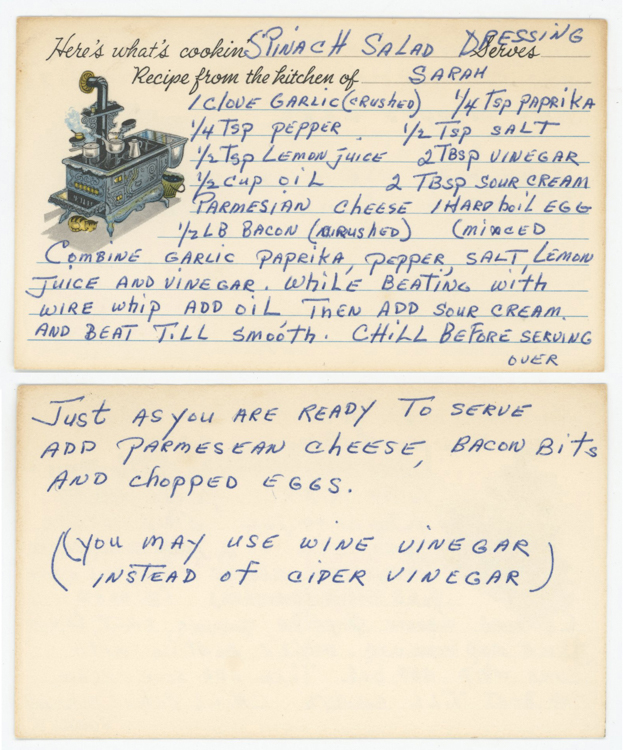 Here's what's cookin SPINACH SALAD DRESSING Serves
Recipe from the kitchen of SARAH
1 CLOVE GARLIC (CRUSHED) 1/4 Tsp PAPRIKA
1/4 Tsp PEPPER 1/2 Tsp SALT
1/2 Tsp LEMON JUICE 2 TBSP VINEGAR
1/2 CUP OIL 2 TBSP SOUR CREAM
PARMESIAN CHEESE 1 HARD boiL EGG
1/2 LB BACON (CRUSHED) (MINCED
COMBINE GARLIC PAPRIKA, PEPPER, SALT, LEMON
JUICE AND VINEGAR. WHILE BEATING with
WIRE whip ADD OIL THEN ADD SOUR CREAM.
AND BEAT TILL SMOOTH. CHILL BEFORE SERVING
OVER
JUST AS YOU ARE READY TO SERVE
ADD PARMESEAN CHEESE, BACON BITS
AND CHOPPED EGGS.
(YOU MAY USE WINE VINEGAR
INSTEAD OF CIDER VINEGAR)